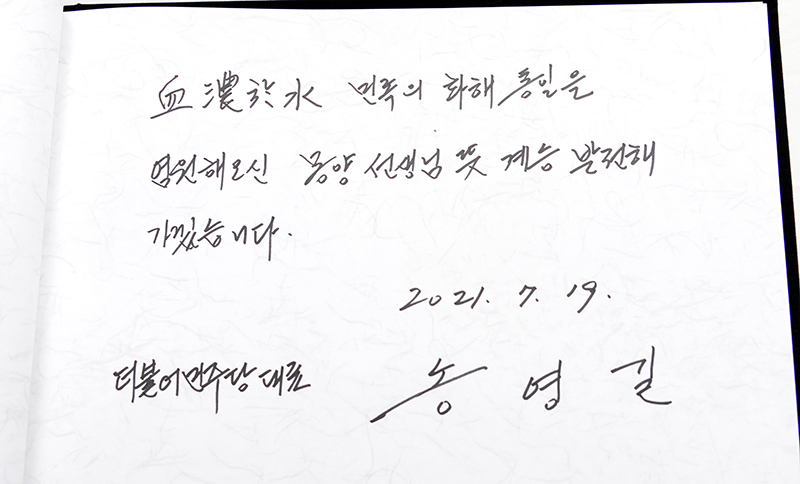 血濃於水 민족의 화해 통일을
염원해오신 몽양 선생님 뜻 계승 발전해
가겠습니다.
2021. 7. 19.
더불어민주당대표 송영길